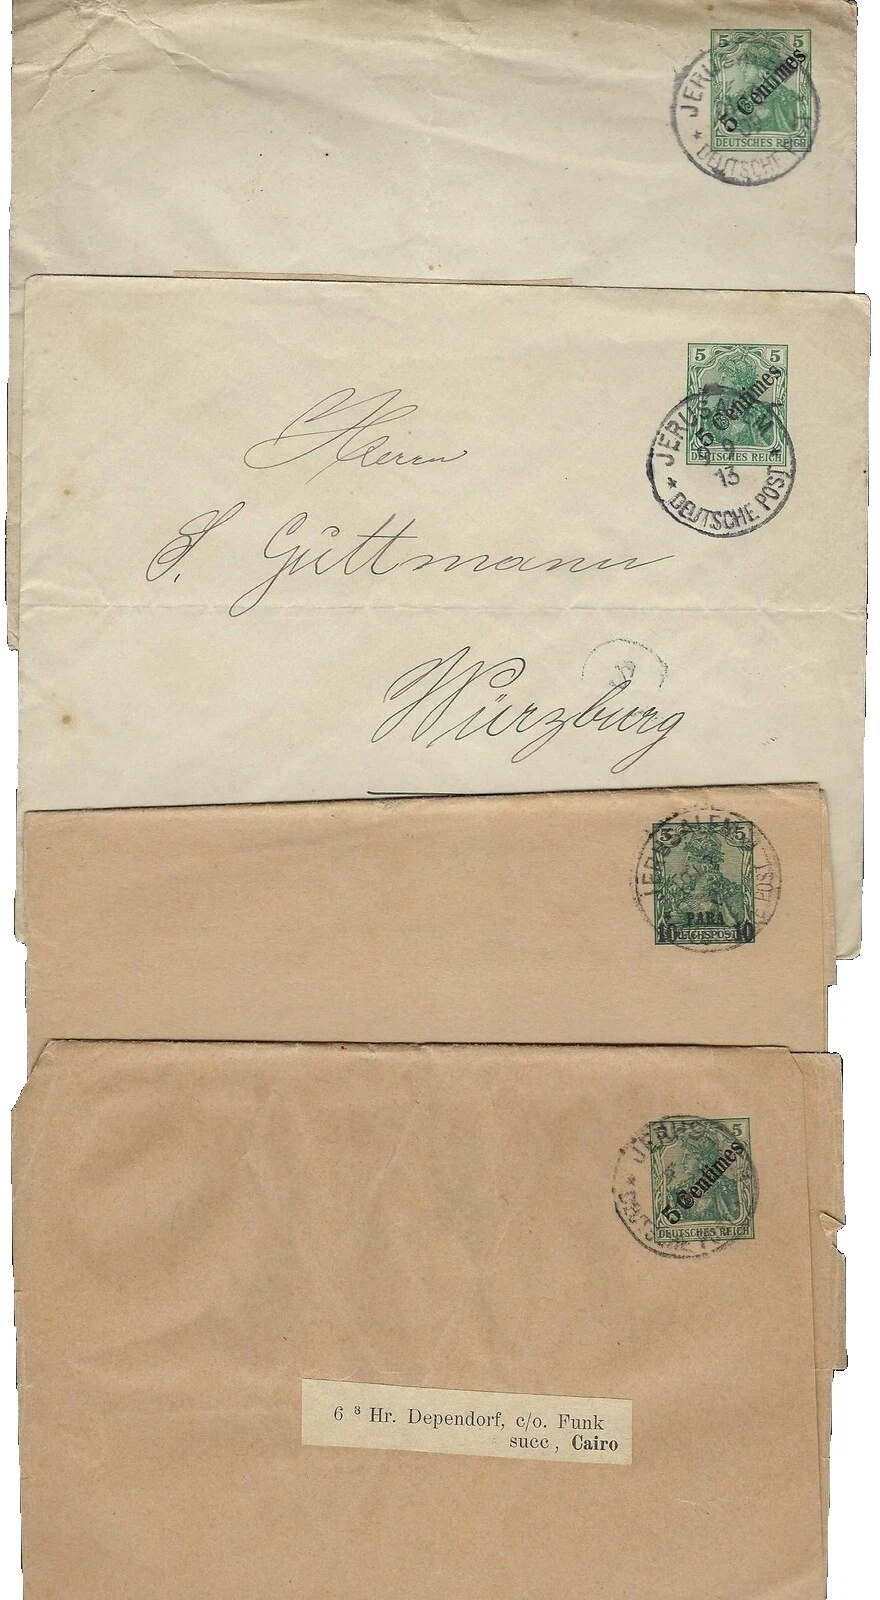 5 5
5 Centimes
DEUTSCHES REICH
DEUTSCHE
5 5
5 Centimes
DEUTSCHES REICH
JERUSALEM
9
13
* DEUTSCHE POST *
Herrn
S. Guttmann
Würzburg
5 5
PARA
10 10
REICHSPOST
JERUSALEM
POST
5
5 Centimes
DEUTSCHES REICH
6 8 Hr. Dependorf, c/o. Funk
succ, Cairo